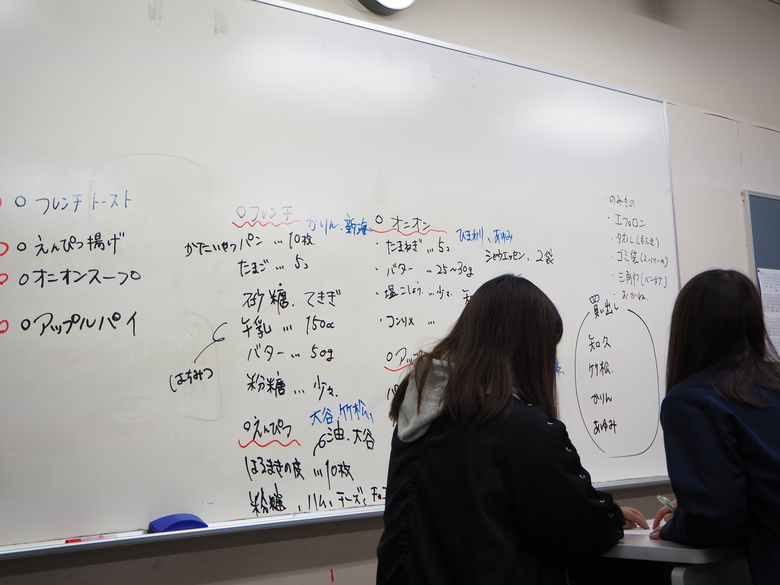 ○ フレンチトースト
○ えんぴつ揚げ
○ オニオンスープ
○ アップルパイ
○ フレンチ かりん、新海
かたいやつパン … 10枚
たまご … 5コ
砂糖、てきぎ
牛乳 … 150cc
はちみつ
バター … 50g
粉糖 … 少々
○ えんぴつ 大谷、竹松、
油、大谷
はるまきの皮 … 10枚
粉糖、ハム、チーズ、チョコ
○ オニオン ひまわり、あゆみ
・たまねぎ … 5コ シャウエッセン、2袋
・バター … 25~30g
・塩こしょう … 少々
・コンソメ …
○ アップ
・のみもの
・エプロン
・タオル
・ゴミ袋
・三角巾(バンダナ)
・おかね
買い出し
知久
竹松
かりん
あゆみ